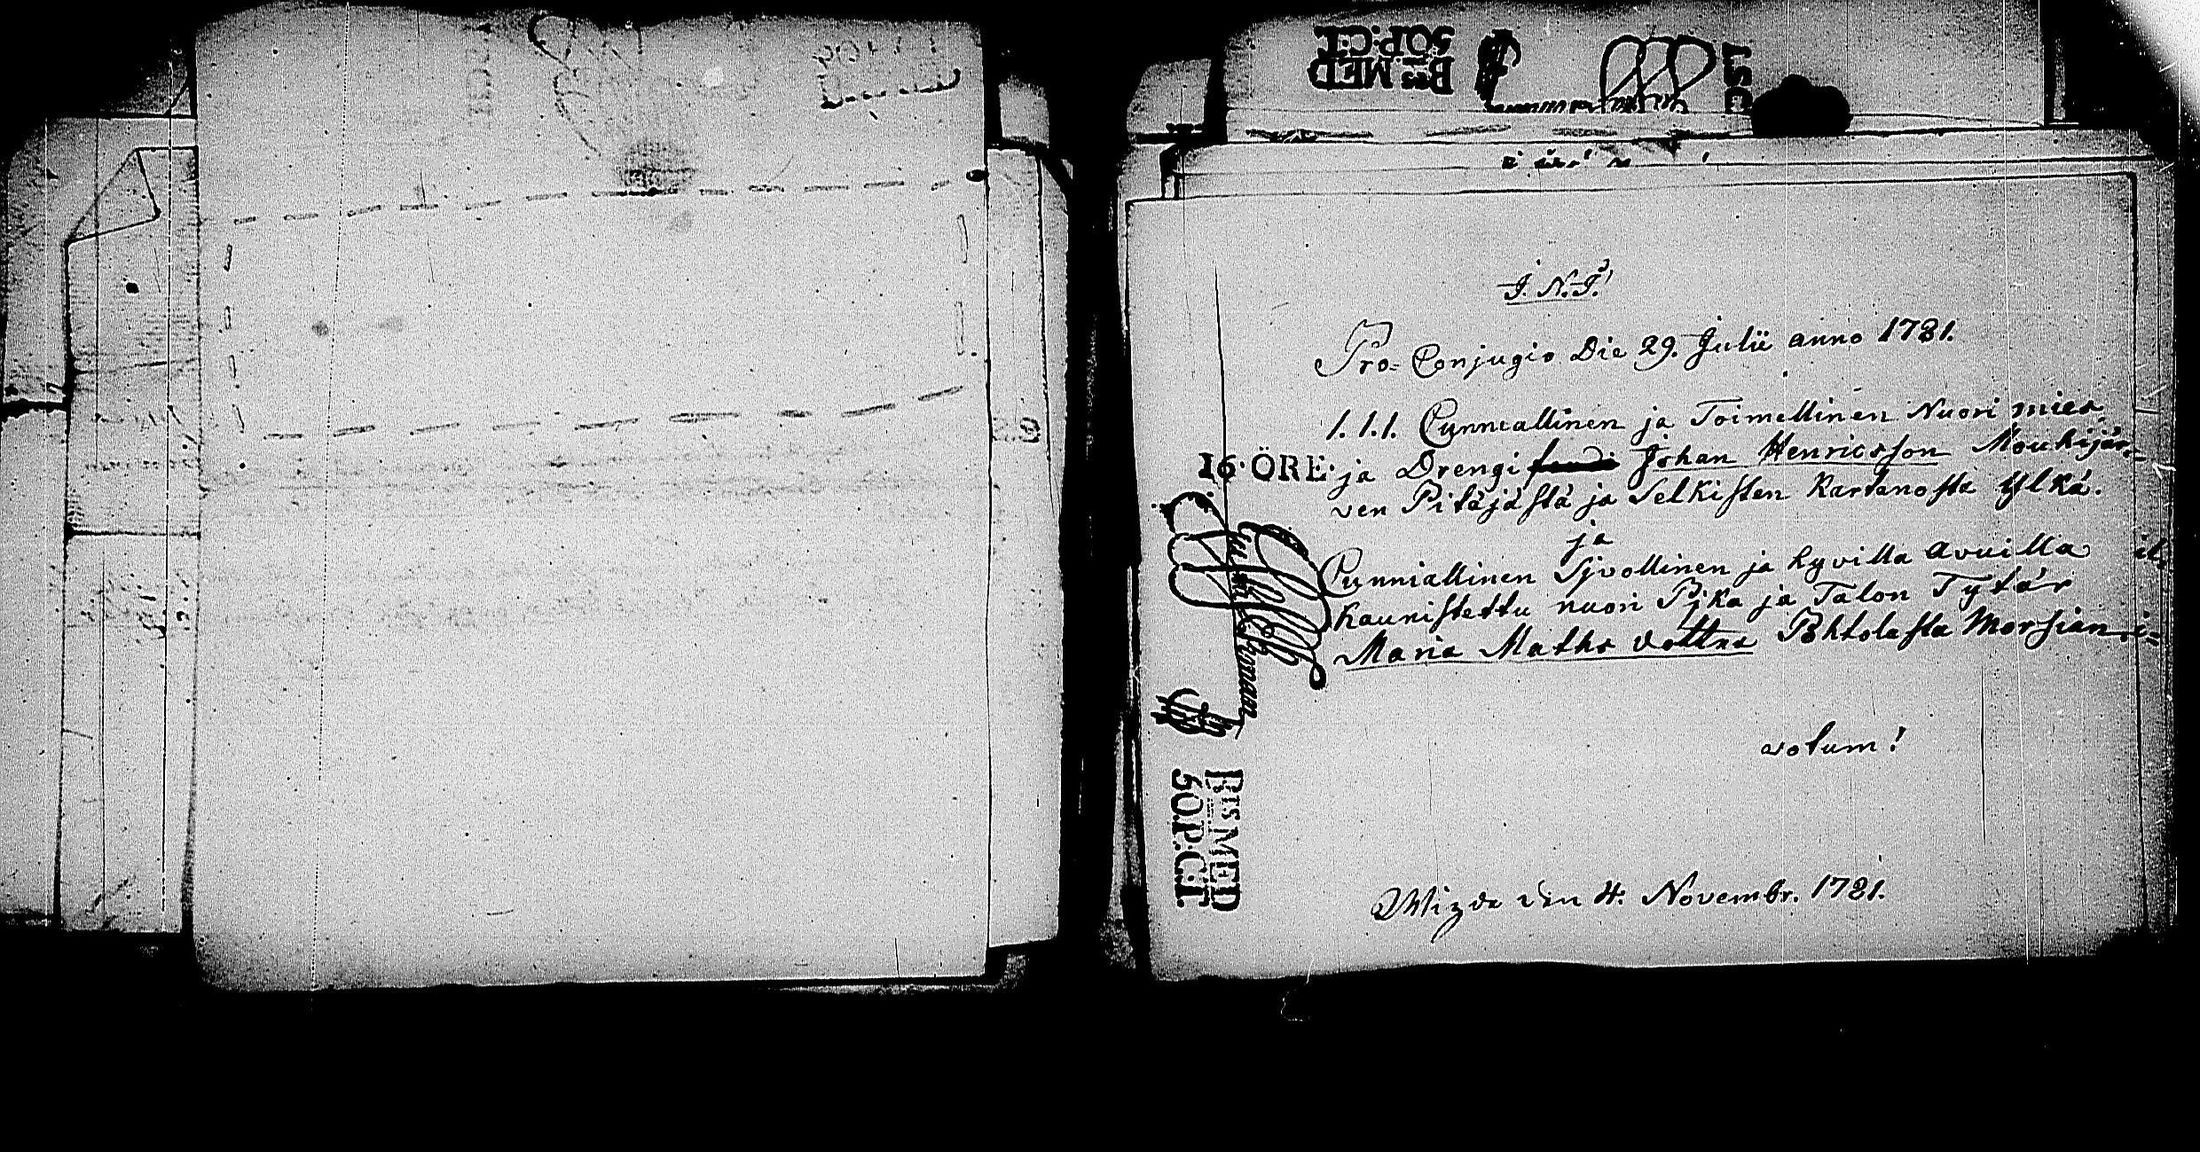 J. N. J.
Pro- Conjugio Die 29. Julii anno 1781.
1.1.1. Cunniallinen ja Toimellinen Nuori mies
ja Drengi Johan Henricsson Mouhijär-
ven Pitäjästä ja Selkisten Kartanosta Ylkä.
ja
Cunniallinen Sijvollinen ja hyvillä avuilla
kaunistettu nuori Pijka ja Talon Tytär
Maria Maths dottra Pohtolasta Morsian
votum!
den 4. Novembr. 1781.
16·ÖRE·
BTS MED
50.P:C:T.
BTS MED
50.P:C:T.